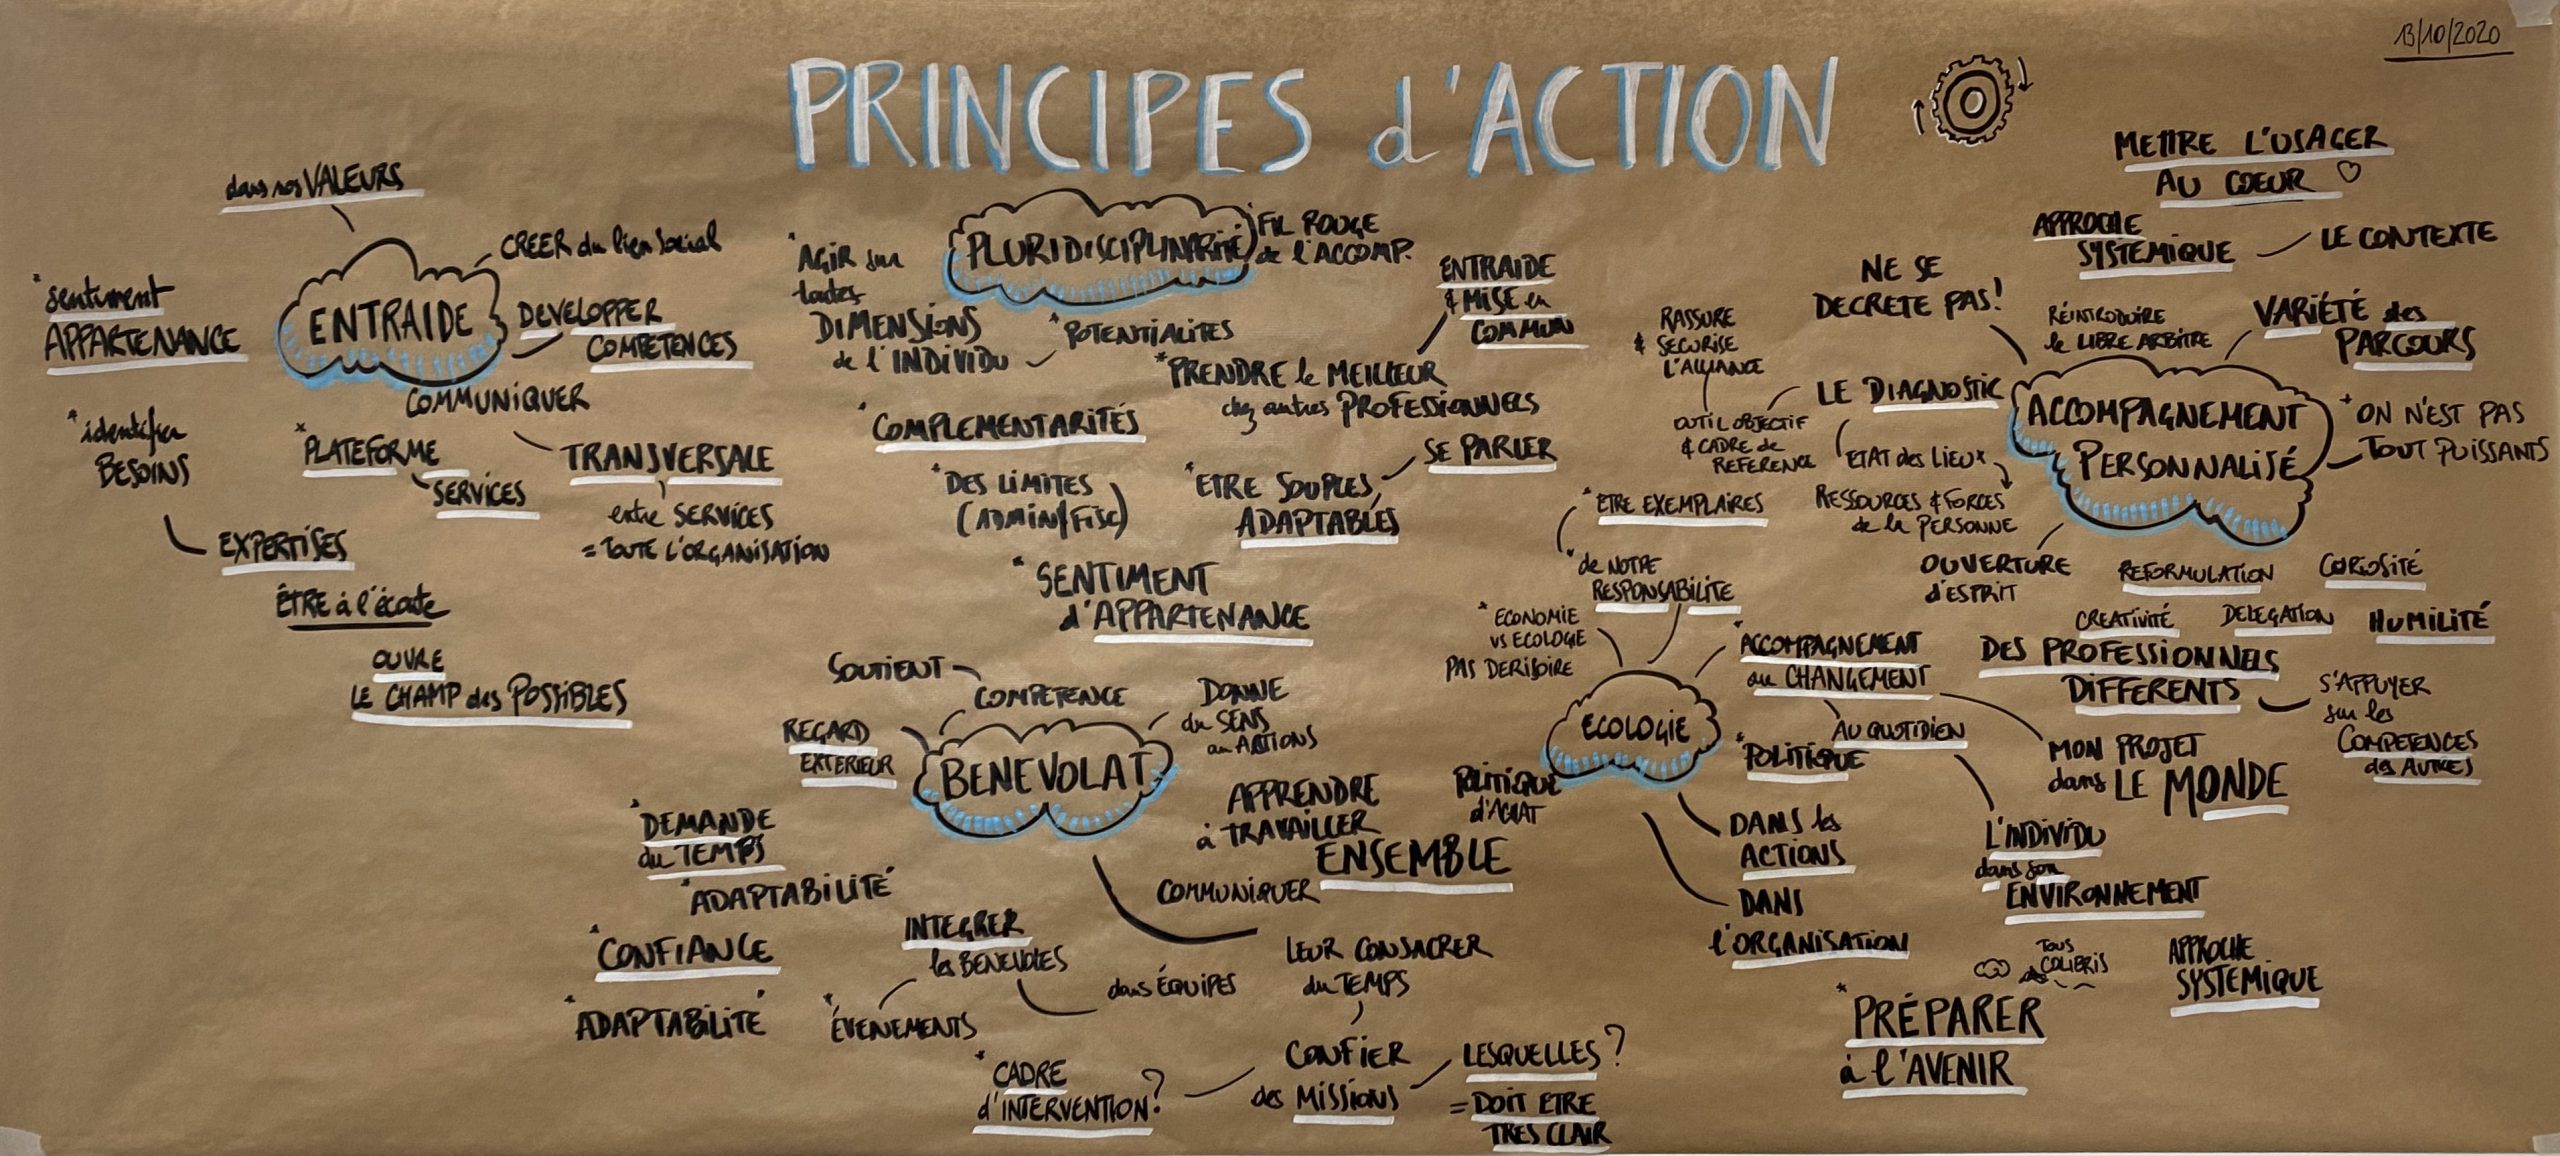 13/10/2020
PRINCIPES d'ACTION
dans nos VALEURS
ENTRAIDE
CREER du lien social
DEVELOPPER
COMPETENCES
* sentiment
APPARTENANCE
* identifier
BESOINS
EXPERTISES
ÊTRE à l'écoute
OUVRE
LE CHAMP des POSSIBLES
COMMUNIQUER
* PLATEFORME
SERVICES
TRANSVERSALE
entre SERVICES
= TOUTE L'ORGANISATION
PLURIDISCIPLINARITÉ
* FIL ROUGE
de l'ACCOMP.
* AGIR sur
toutes
DIMENSIONS
de l'INDIVIDU
* POTENTIALITES
ENTRAIDE
& MISE en
COMMUN
* PRENDRE le MEILLEUR
chez autres PROFESSIONNELS
* COMPLEMENTARITÉS
* DES LIMITES
(ADMIN/FISC)
* ETRE SOUPLES,
ADAPTABLES
SE PARLER
* SENTIMENT
d'APPARTENANCE
METTRE L'USAGER
AU COEUR
APPROCHE
SYSTEMIQUE
LE CONTEXTE
NE SE
DECRETE PAS!
RÉINTRODUIRE
le LIBRE ARBITRE
VARIÉTÉ des
PARCOURS
ACCOMPAGNEMENT
PERSONNALISÉ
* ON N'EST PAS
TOUT PUISSANTS
RASSURE
& SECURISE
L'ALLIANCE
LE DIAGNOSTIC
OUTIL OBJECTIF
& CADRE de
REFERENCE
ETAT des LIEUX
RESSOURCES & FORCES
de la PERSONNE
OUVERTURE
d'ESPRIT
REFORMULATION
CURIOSITÉ
CREATIVITÉ
DELEGATION
HUMILITÉ
DES PROFESSIONNELS
DIFFERENTS
S'APPUYER
sur les
COMPETENCES
des AUTRES
* ETRE EXEMPLAIRES
* de NOTRE
RESPONSABILITE
* ECONOMIE
vs ECOLOGIE
PAS DERISOIRE
ECOLOGIE
* ACCOMPAGNEMENT
au CHANGEMENT
AU QUOTIDIEN
* POLITIQUE
POLITIQUE
d'ACHAT
DANS les
ACTIONS
DANS
l'ORGANISATION
MON PROJET
dans LE MONDE
L'INDIVIDU
dans son
ENVIRONNEMENT
TOUS
COLIBRIS
APPROCHE
SYSTEMIQUE
* PRÉPARER
à l'AVENIR
SOUTIENT
COMPETENCE
DONNE
du SENS
aux ACTIONS
REGARD
EXTERIEUR
BENEVOLAT
APPRENDRE
à TRAVAILLER
ENSEMBLE
COMMUNIQUER
* DEMANDE
du TEMPS
* ADAPTABILITÉ
* CONFIANCE
* ADAPTABILITÉ
INTEGRER
les BENEVOLES
dans ÉQUIPES
* ÉVENEMENTS
LEUR CONSACRER
du TEMPS
CONFIER
des MISSIONS
LESQUELLES?
= DOIT ETRE
TRES CLAIR
* CADRE
d'INTERVENTION?